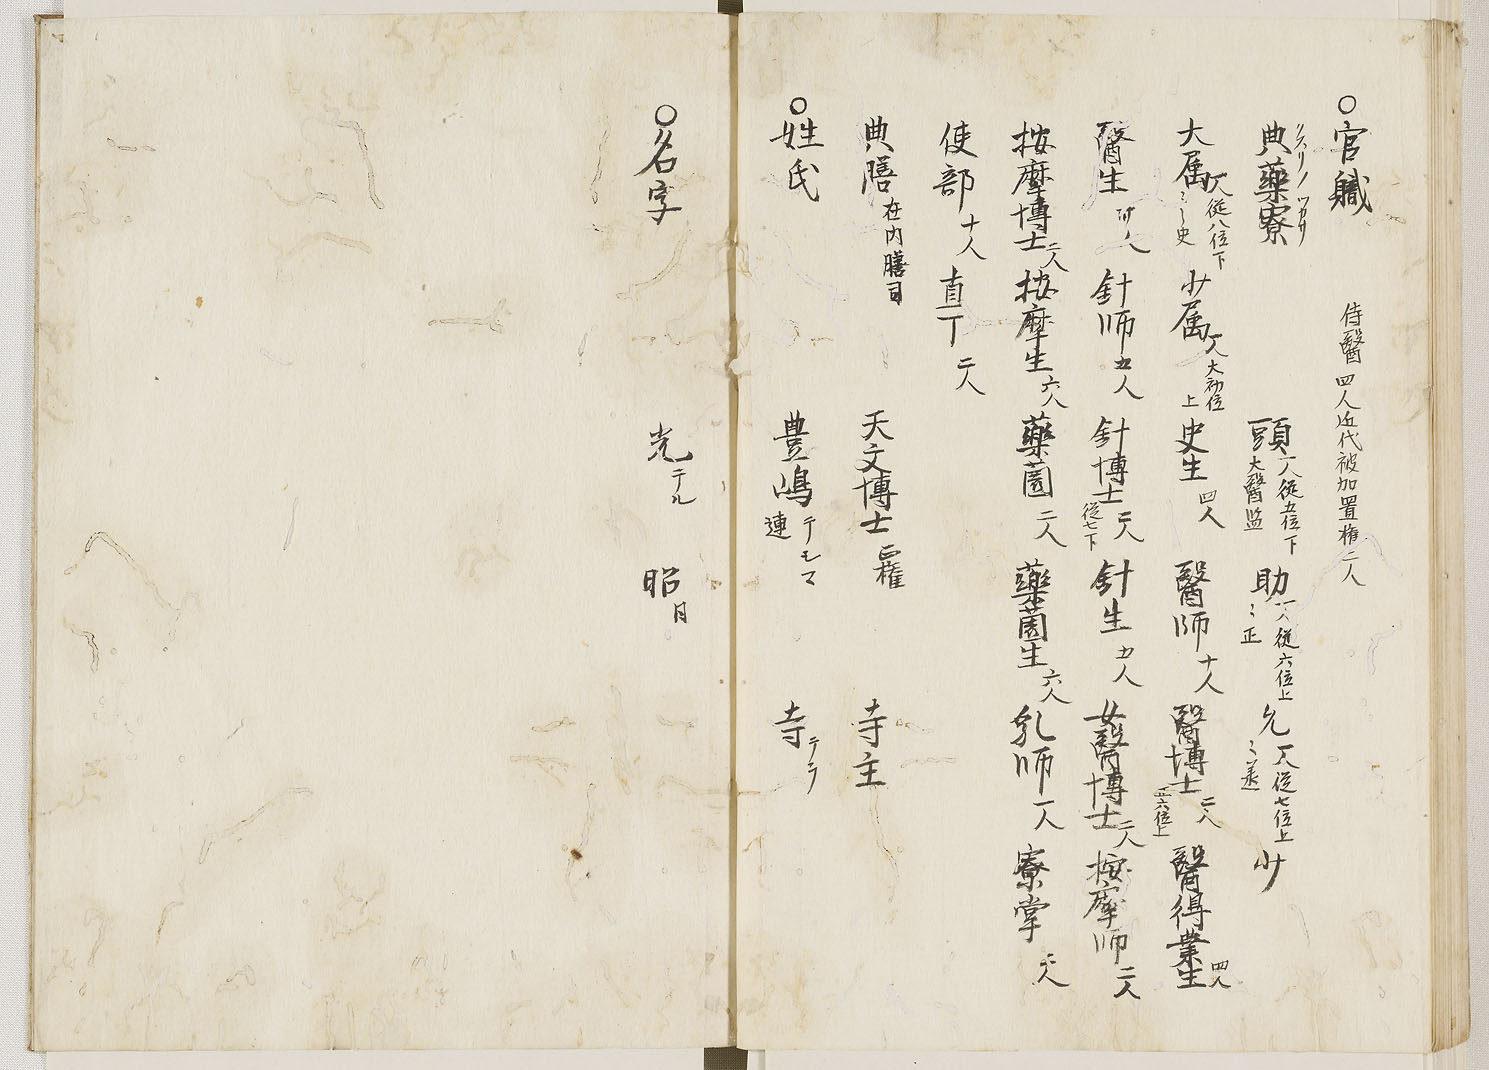 ○官職 侍醫四人近代被加置権二人
典藥寮 クスリノツカサ 頭 一人従五位下 大醫監 助 一人従六位上 〻正 允 一人従七位上 〻丞 少
大属 一人従八位下 〻〻史 少属 一人大初位上 史生 四人 醫師 十人 醫博士 二人 正六位上 醫得業生 四人
醫生 卌人 針師 五人 針博士 一人 従七下 針生 五人 女醫博士 一人 按摩師 二人
按摩博士 一人 按摩生 六人 藥園 二人 藥園生 六人 乳師 一人 寮掌 二人
使部 十人 直丁 二人
典膳 在内膳司 天文博士 正権 寺主
○姓氏 豊嶋 テモマ 連 寺 テラ
○名字 光 テル 昭 月